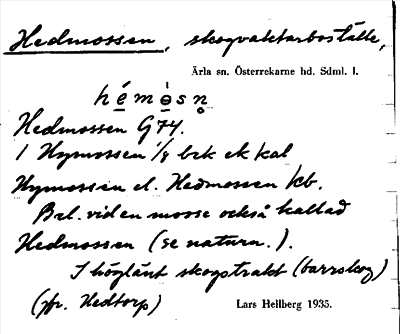 Hedmossen, skogvaktarboställe,
Ärla sn. Österrekarne hd. Sdml. l.
hémòsn̥
Hedmossen G74.
1 Hymossen 1/8 bek ek kal
Hymossen el. Hedmossen kb.
Bel. vid en mosse också kallad
Hedmossen (se naturn.).
I höglänt skogstrakt (barrskog)
(jfr. Hedtorp)
Lars Hellberg 1935.